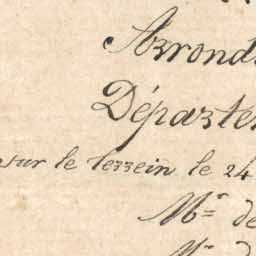 Arrond
Départe
sur le terrein le 24
Mr. de
Mr. d